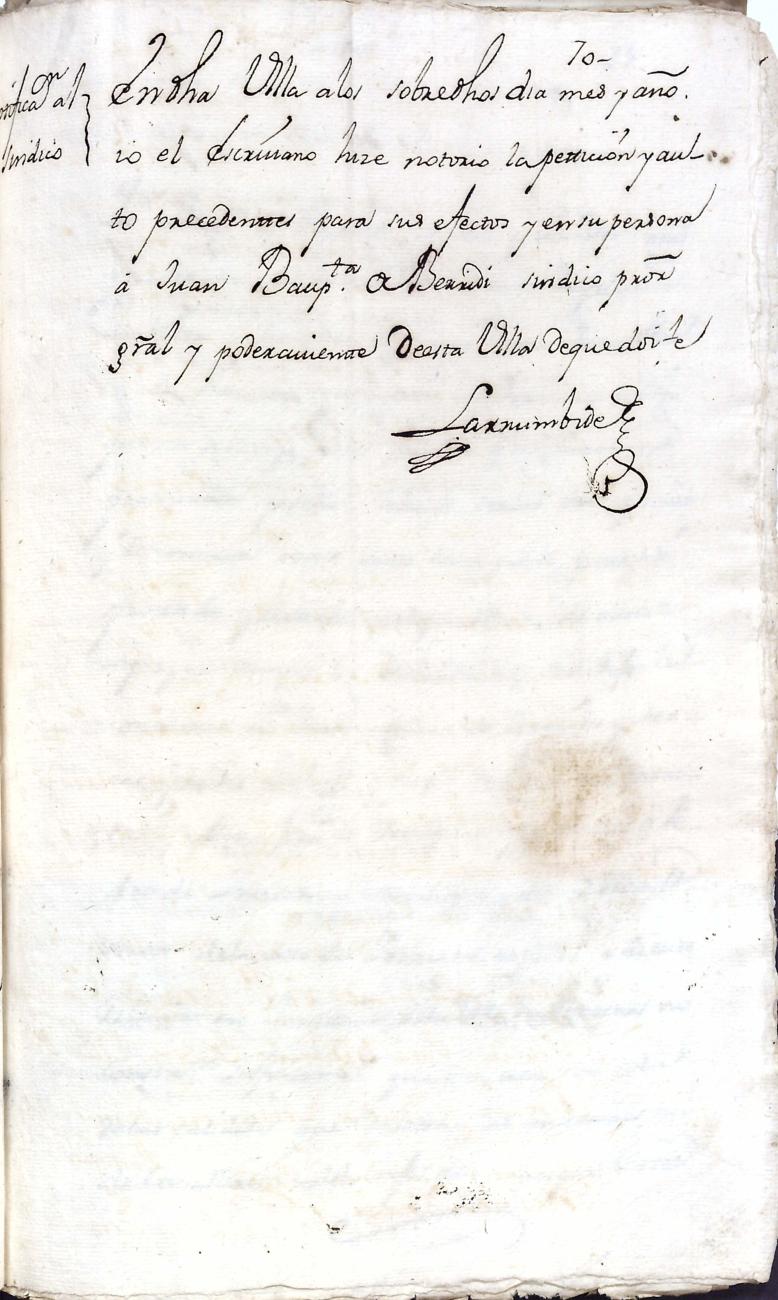 70-
notificaon al
síndico
En dha Villa a los sobredhos dia mes y año.
io el Escrivano hize notorio la petticion y aut-
to precedenttes para sus efectos y en su persona
á Juan Bapta de Berridi sindico pror
gral y poderaviente De esta Villa de que doi fe
Larrumbide